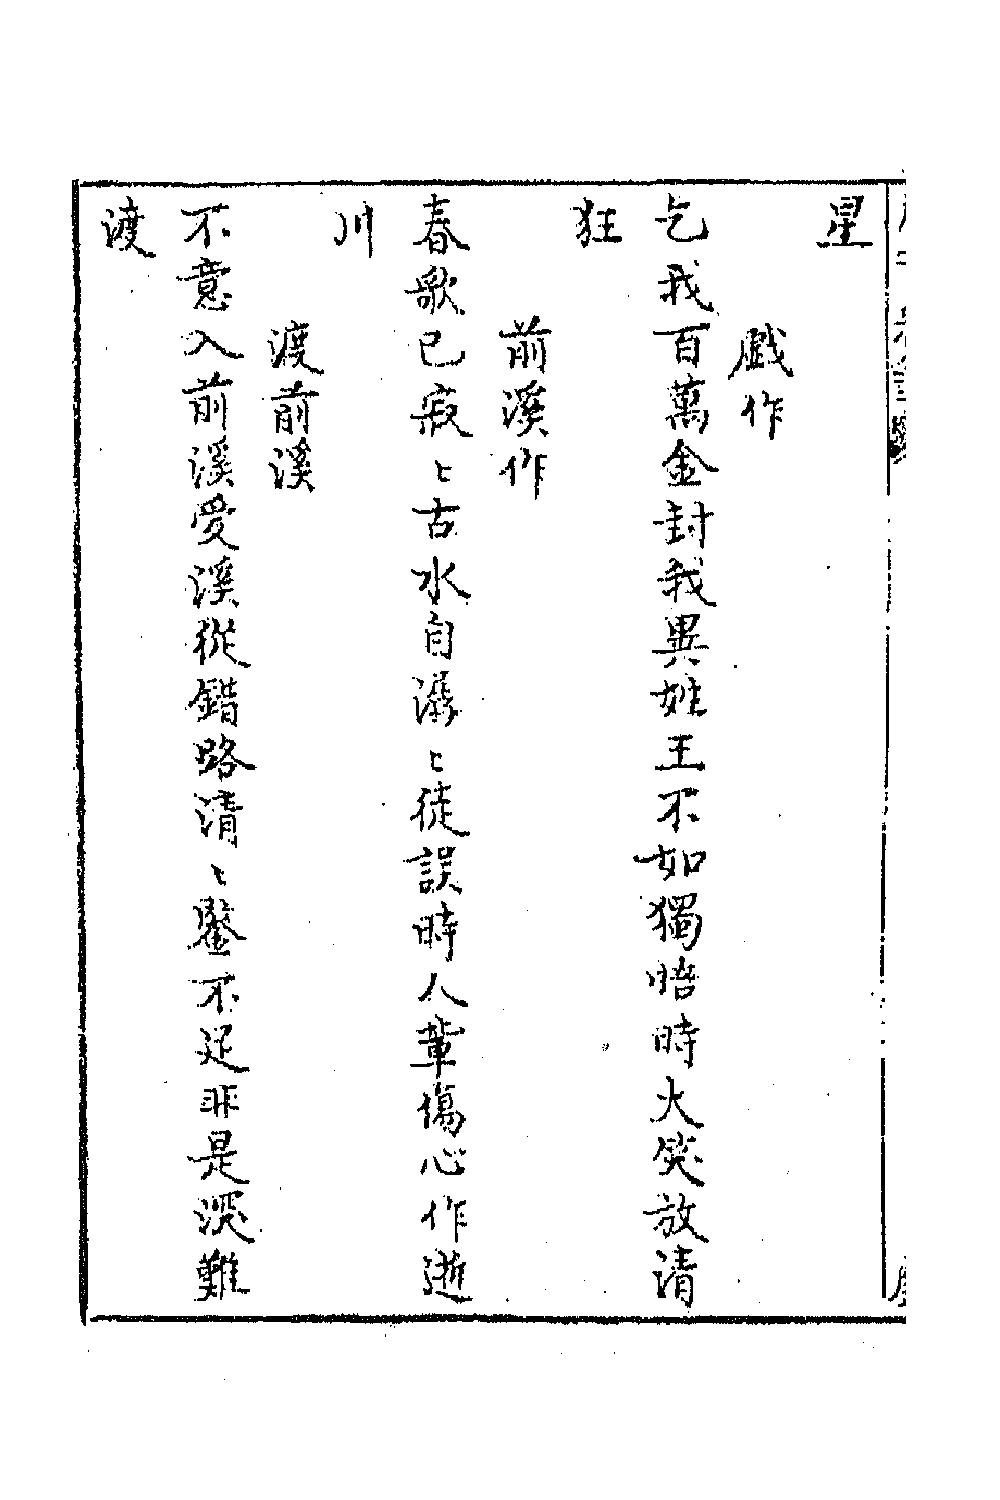 星
戯作
乞我百萬金封我異姓王不如獨悟時大笑放清
狂
前溪作
春歌已寂〻古水自潺〻徒誤時人輩傷心作逝
川
渡前溪
不意入前溪愛溪從錯路清〻鑒不足非是深難
渡